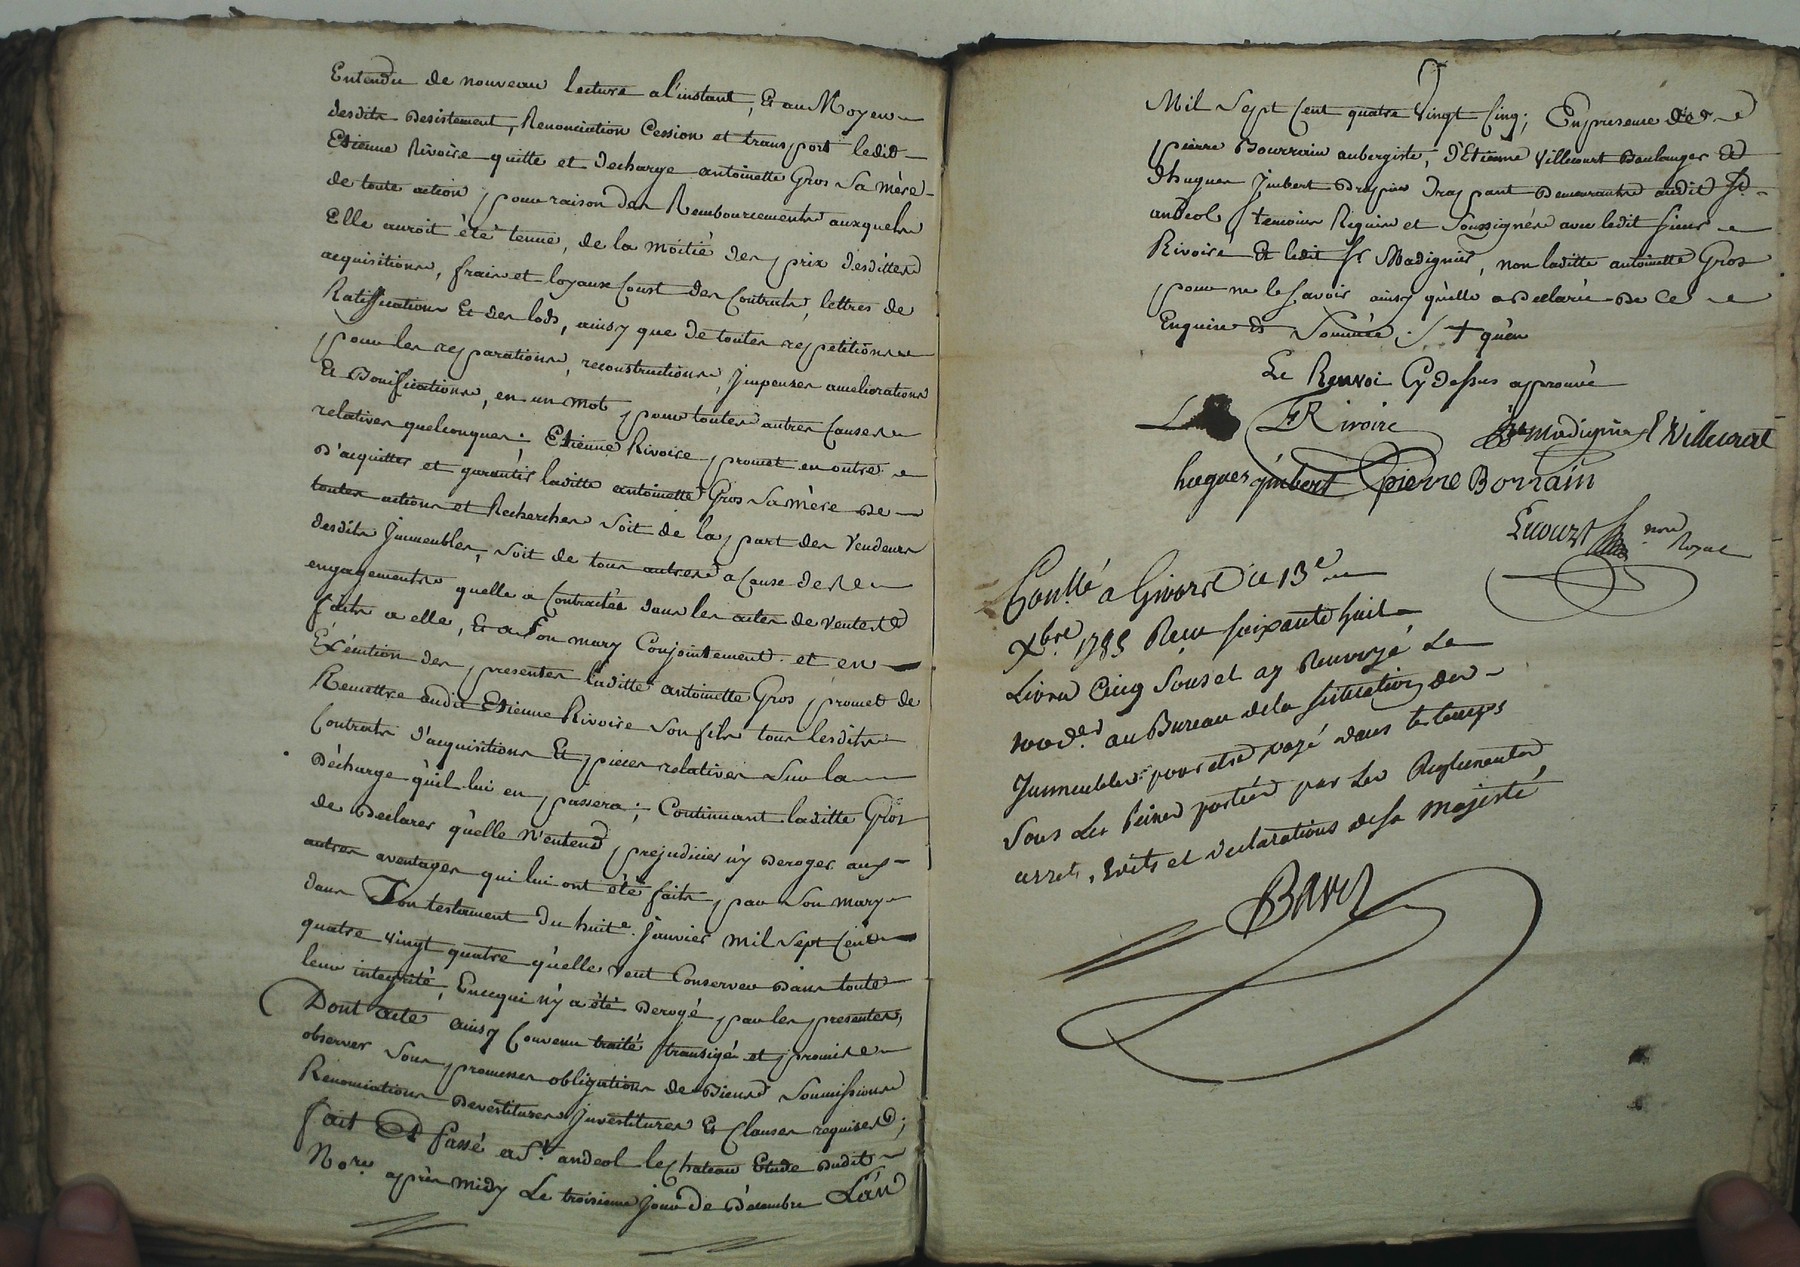 Entendu de nouveau lecture a l'instant, Et au Moyen
desdits Desistement, Renonciation Cession et transport ledit
Etienne Rivoire quitte et decharge antoinette Gros Sa mère
de toute action pour raison des Remboursements auxquels
Elle auroit été tenue, de la moitié des prix desdittes
acquisitions, frais et loyaux Coust des Contrats, lettres de
Ratifications Et des lods, ainsy que de toutes repetitions
pour les reparations, reconstructions, Impenses ameliorations
Et Bonifications, en un mot pour toutes autres Causes
relatives quelconques; Etienne Rivoire promet en outre
D'acquitter et garantir laditte antoinette Gros Sa Mère De
toutes actions et Recherches Soit de la part des Vendeurs
desdits Immeubles, Soit de tous autres a Cause des
engagements quelle a Contractés dans les actes de Ventes
faits a elle, Et a Son mary Conjointement. et en
Exécution des presentes laditte antoinette Gros promet de
Remettre audit Etienne Rivoire Son fils tous lesdits
Contrats d'acquisitions Et pieces relatives Sur la
Décharge qu'il lui en passera; Continuant laditte Gros
de Declarer qu'elle N'entend prejudicier n'y Deroger aux
autres aventages qui lui ont été faits par Son mary
dans Son testament du huite. Janvier mil Sept Cent
quatre vingt quatre qu'elle veut Conserver Dans toute
leur integrité, Ence qui n'y a été Derogé par les presentes,
Dont acte ainsy Convenu traité transigé et promis
observer Sous promesses obligations de Biens Soumissions
Renonciations Devestitures Investitures Et Clauses requises;
fait Et Passé a St. andeol le Chateau Etude Dudit
Nore. après midy Le troisieme jour de Décembre L'an
Mil Sept Cent quatre Vingt Cinq; En presence de
pierre Bourrain aubergiste, d'Etienne Villecourt Boulanger Et
d'hugues Imbert Drapier Drapant Demeurants audit St.
andeol temoins Requis et Soussignés avec ledit Sieur
Rivoire Et ledit Sr Madignier, non laditte antoinette Gros
pour ne le Savoir ainsy qu'elle a Declaré De Ce
Enquise Et Sommée ./. + qu'en
Le Renvoi Cy dessus approuvé
Rivoire Madignier E Villecourt
hugues imbert pierre Borrain
nore Royal
Conllé a Givors ce 13e
Xbre 1785 Reçu soixante huit
Livres Cinq Sous et ay Renvoyé Le
au Bureau de la Situation des
Immeubles pour etre payé dans le temps
Sous Les Peines portées par Les Reglements
arrets, Edits et Declarations de Sa Majesté